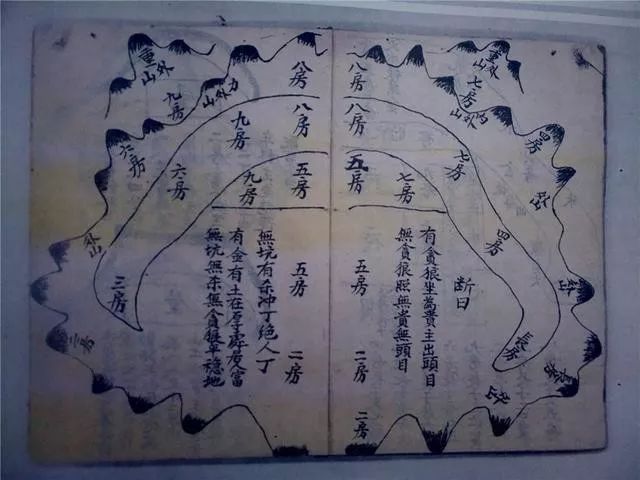 重外山
七房
外山
四房
七房
四房
長房
八房
八房
五房
七房
断曰
有貪狼坐為貴主出頭目
無貪狼照無貴無頭目
五房
二房
二房
八房
八房
五房
九房
九房
外山
九房
重外山
六房
六房
外山
三房
三房
五房
二房
無坑有杀冲丁绝人丁
有金有土在人富
無坑無杀無貪狼平穩地